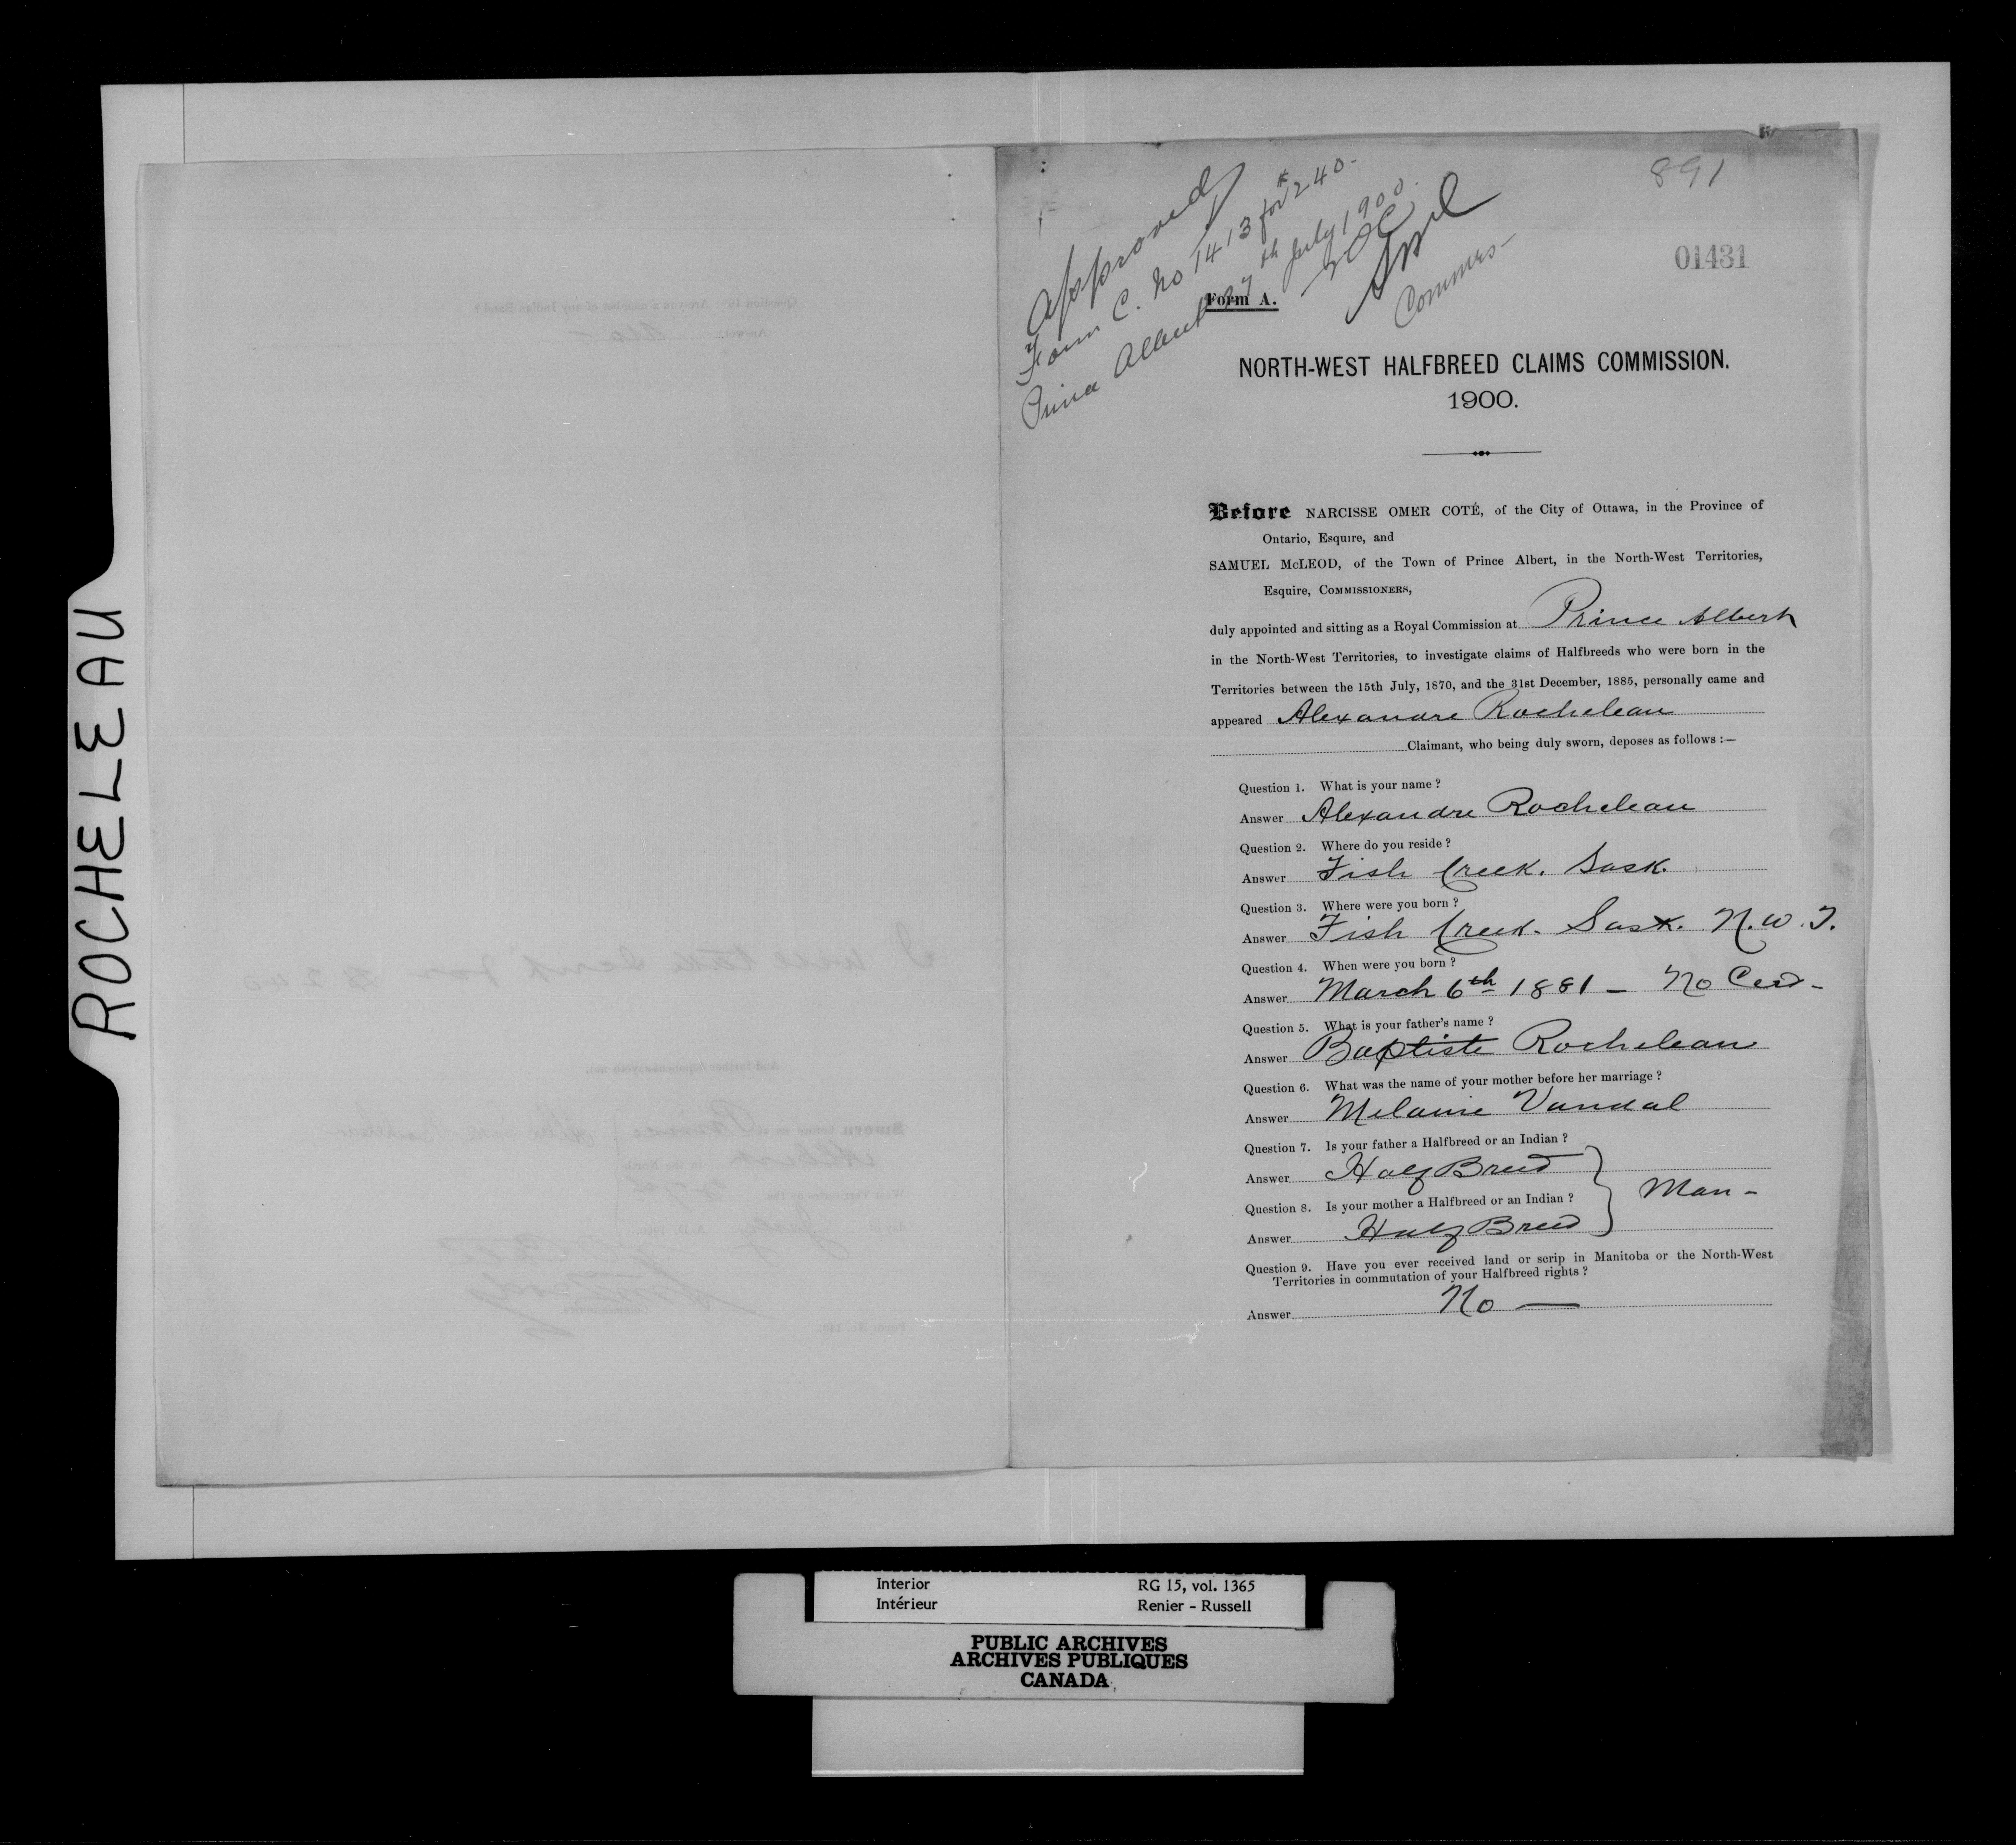 ROCHELEAU
891
01431
Approved
Form C. No 1413 for $240-
Prince Albert 27th July 1900.
NOC
Commrs-
Form A.
NORTH-WEST HALFBREED CLAIMS COMMISSION.
1900.
Before NARCISSE OMER COTÉ, of the City of Ottawa, in the Province of
Ontario, Esquire, and
SAMUEL McLEOD, of the Town of Prince Albert, in the North-West Territories,
Esquire, COMMISSIONERS,
duly appointed and sitting as a Royal Commission at Prince Albert
in the North-West Territories, to investigate claims of Halfbreeds who were born in the
Territories between the 15th July, 1870, and the 31st December, 1885, personally came and
appeared Alexandre Rocheleau
Claimant, who being duly sworn, deposes as follows :—
Question 1. What is your name ?
Answer Alexandre Rocheleau
Question 2. Where do you reside ?
Answer Fish Creek. Sask.
Question 3. Where were you born ?
Answer Fish Creek. Sask. N.W.T.
Question 4. When were you born ?
Answer March 6th 1881 - No Cert-
Question 5. What is your father's name ?
Answer Baptiste Rocheleau
Question 6. What was the name of your mother before her marriage ?
Answer Melanie Vandal
Question 7. Is your father a Halfbreed or an Indian ?
Answer Half Breed
Man-
Question 8. Is your mother a Halfbreed or an Indian ?
Answer Half Breed
Question 9. Have you ever received land or scrip in Manitoba or the North-West
Territories in commutation of your Halfbreed rights ?
Answer No —
Interior RG 15, vol. 1365
Intérieur Renier - Russell
PUBLIC ARCHIVES
ARCHIVES PUBLIQUES
CANADA